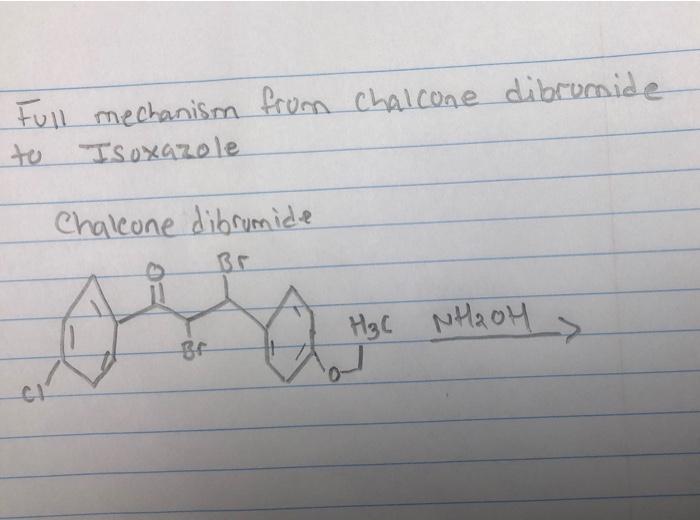 Full mechanism from chalcone dibromide
to Isoxazole
Chalcone dibromide
O
Br
Br
Cl
H3C
O
NH2OH